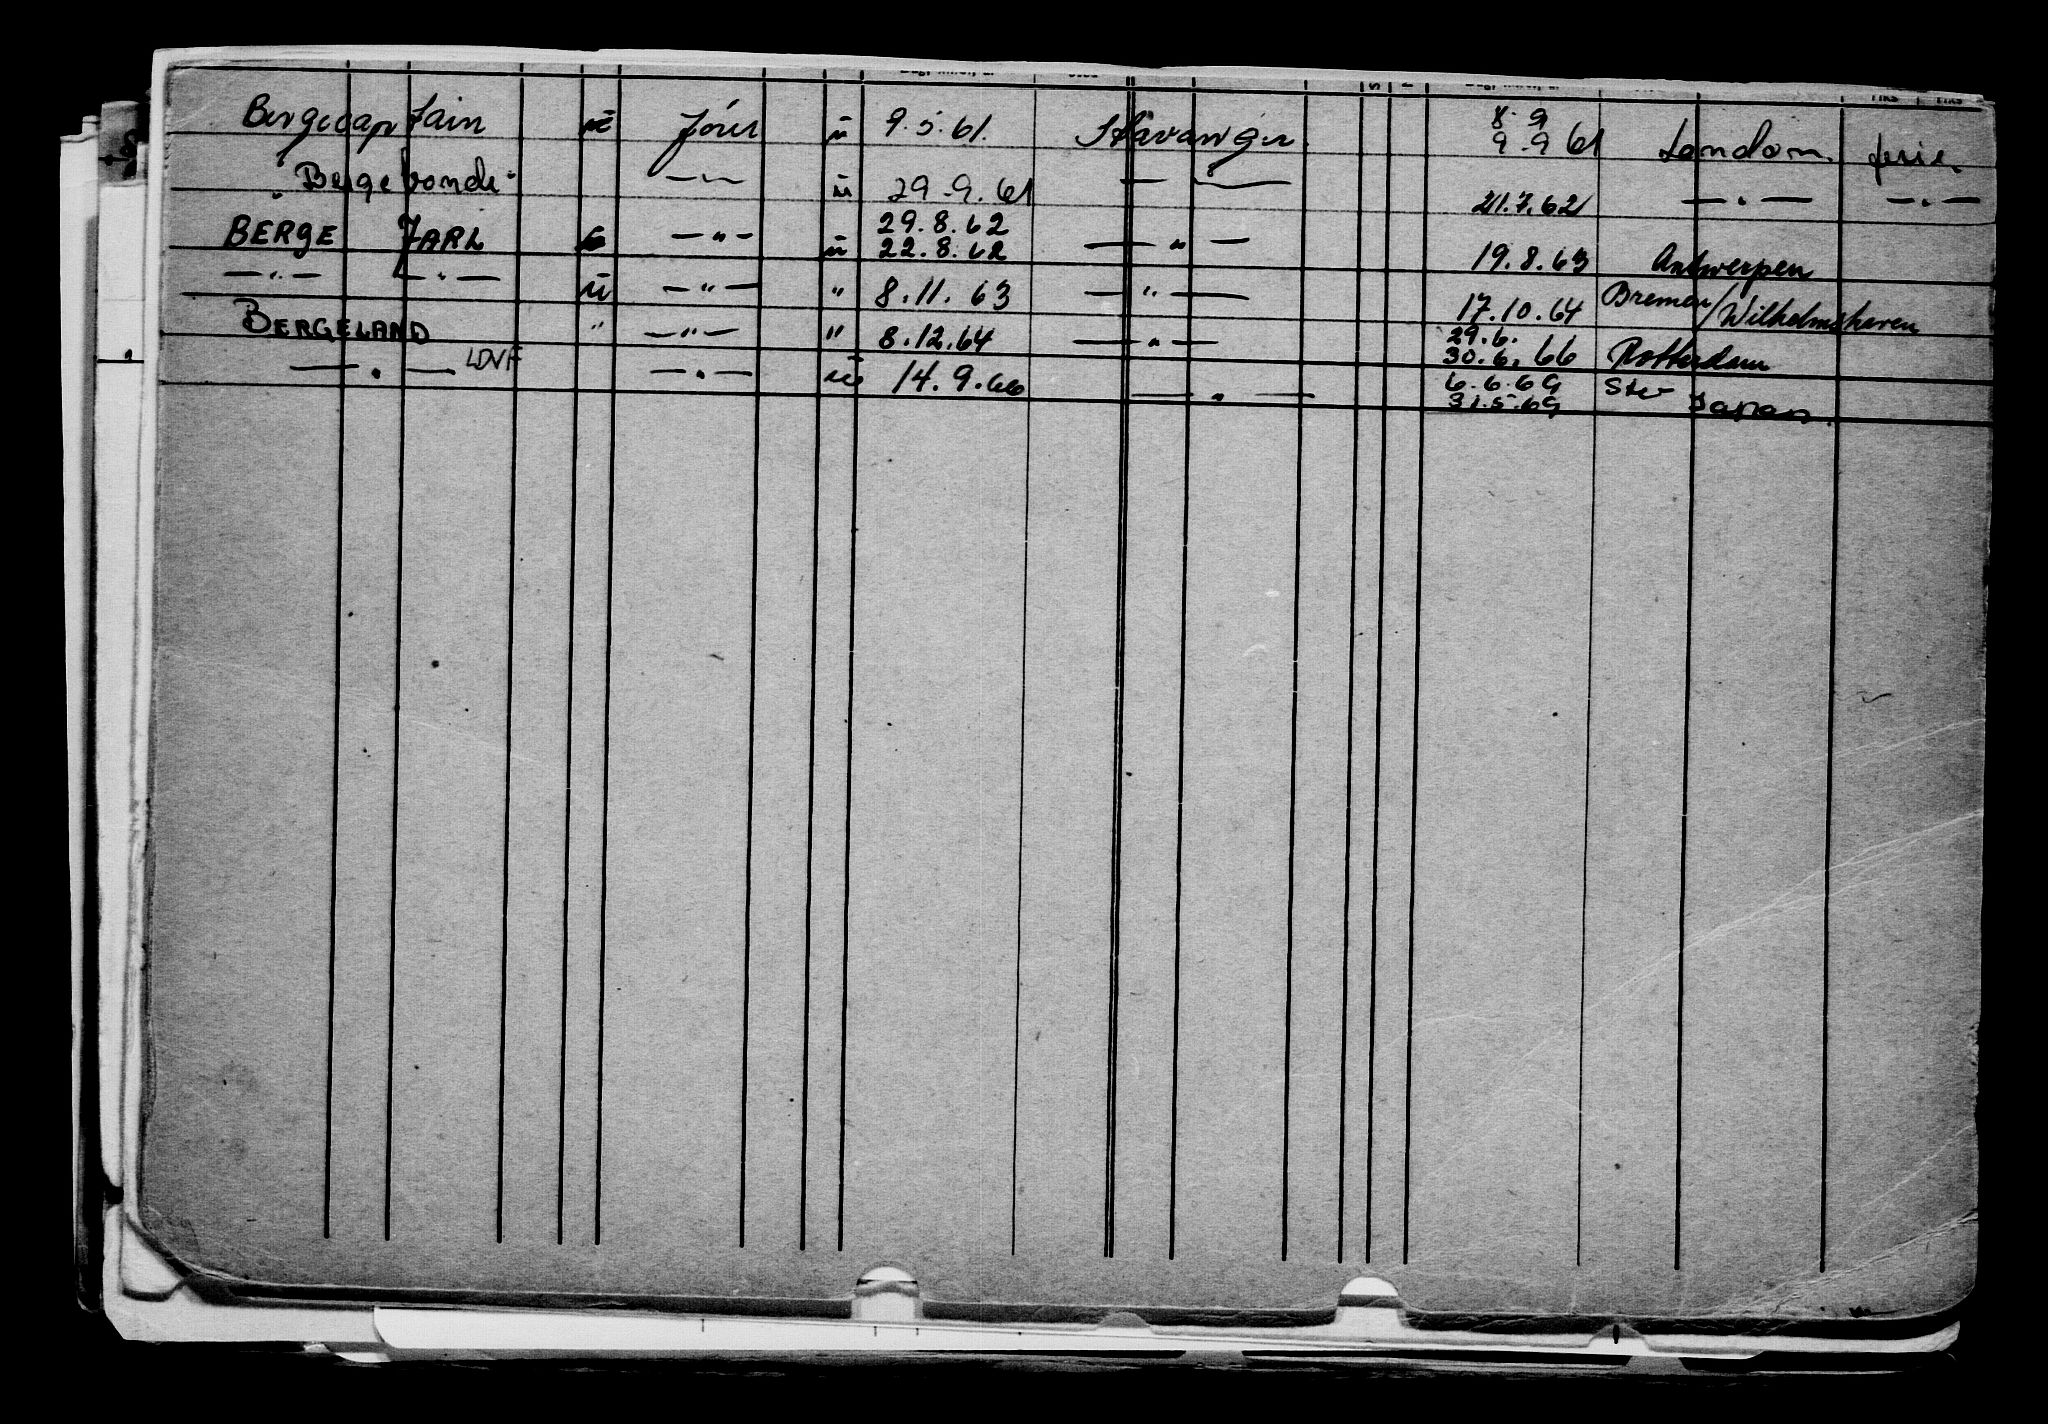 Bergecaptain ü Förer ü 9.5.61. Stavanger 8.9 9.9 61 London. ferie.
" Bergebonde — " — ü 29.9.61 — 21.7.62 — " — — " —
BERGE JARL — " — ü 29.8.62 22.8.62 — " — 19.8.63 Antwerpen
— " — — " — ü — " — " 8.11.63 — " — 17.10.64 Bremen/Wilhelmshaven
BERGELAND " — " — " 8.12.64 — " — 29.6. 30.6.66 Rotterdam
— " — LDVF — " — 14.9.66 — " — 6.6.69 31.5.69 Japan.